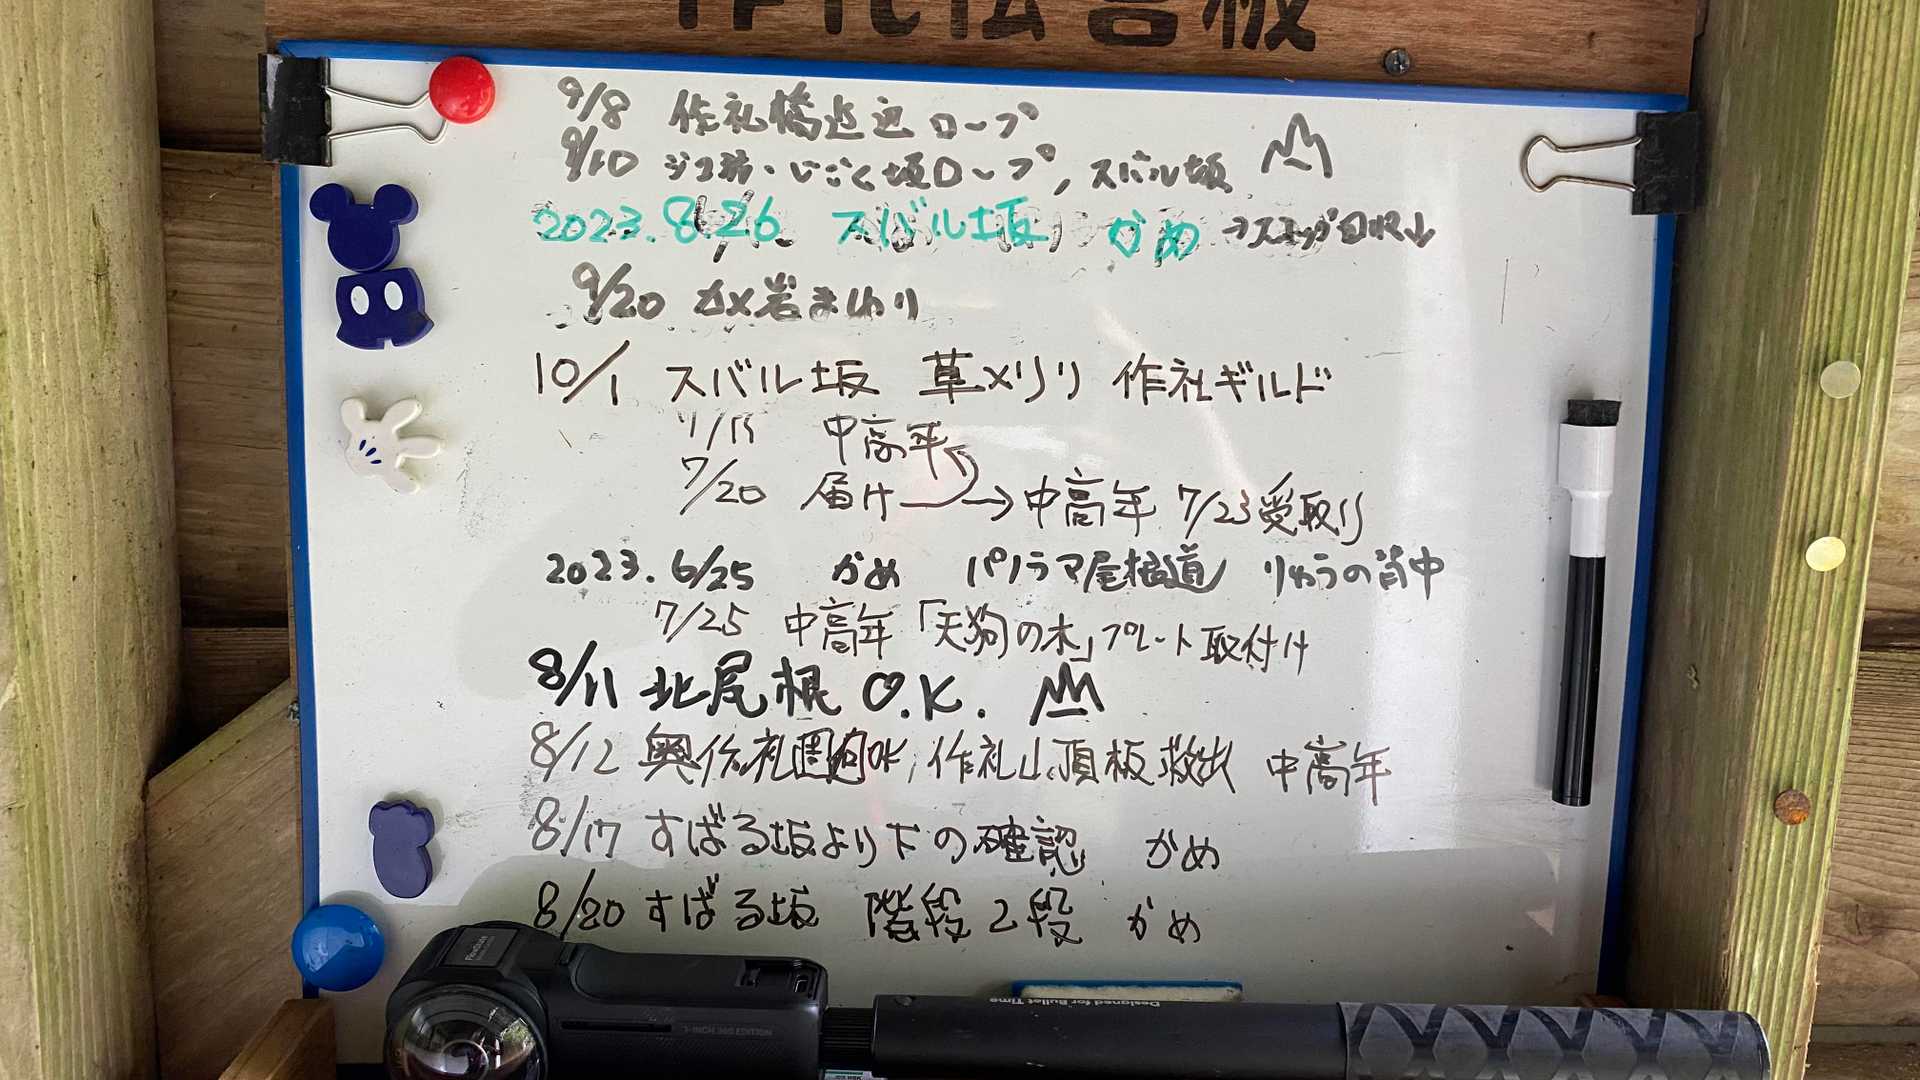 作礼伝言板
9/8 作礼橋近辺 ロープ
9/10 じごく坂ロープ, スバル坂
2023.8.26 スバル坂 かめ →スタッフ回収
9/20 カメ岩まわり
10/1 スバル坂 草メリリ 作社ギルド
7/15 中高年
7/20 届け→中高年 7/23受取り
2023.6/25 かめ パノラマ尾根道 りゅうの背中
7/25 中高年「天狗の木」プレート取付け
8/11 北尾根 O.K.
8/12 奥作礼 作礼山頂板救出 中高年
8/17 すばる坂より下の確認 かめ
8/20 すばる坂 階段2段 かめ
1-INCH 360 EDITION
Designed for Bullet Time